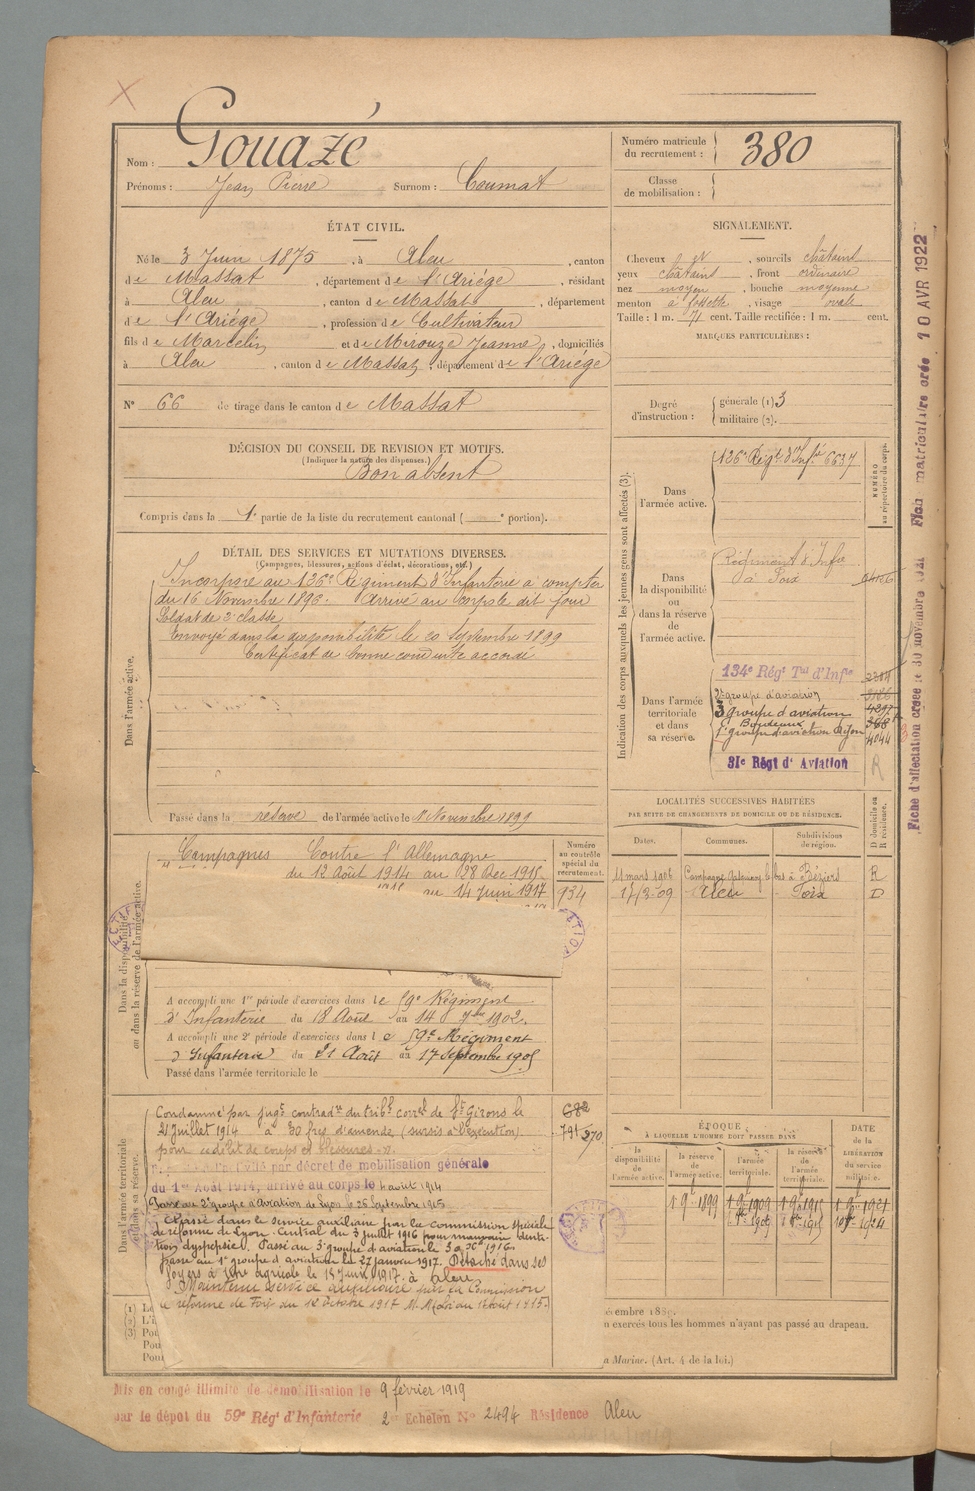 Nom : Gouazé
Prénoms : Jean Pierre Surnom : Coumat
Numéro matricule du recrutement : 380
Classe de mobilisation :
ÉTAT CIVIL.
Né le 3 Juin 1875, à Aleu, canton
de Massat, département de l'Ariége, résidant
à Aleu, canton de Massat, département
de l'Ariége, profession de Cultivateur
fils de Marcelin et de Mirouze Jeanne, domiciliés
à Aleu, canton de Massat, département de l'Ariége
N° 66 de tirage dans le canton de Massat
SIGNALEMENT.
Cheveux, sourcils châtains
yeux châtains, front ordinaire
nez moyen, bouche moyenne
menton à fossette, visage ovale
Taille : 1 m. 71 cent. Taille rectifiée : 1 m. cent.
MARQUES PARTICULIÈRES :
Degré d'instruction : générale (1) 3
militaire (2).
DÉCISION DU CONSEIL DE REVISION ET MOTIFS.
(Indiquer la nature des dispenses.)
Bon absent
Compris dans la 1e partie de la liste du recrutement cantonal ( e portion).
DÉTAIL DES SERVICES ET MUTATIONS DIVERSES.
(Campagnes, blessures, actions d'éclat, décorations, etc.)
Dans l'armée active.
Incorporé au 126e Régiment d'Infanterie à compter
du 16 Novembre 1896. Arrivé au corps le dit jour
Soldat de 2e classe
Envoyé dans la disponibilité le 20 Septembre 1899
Certificat de bonne conduite accordé
Passé dans la réserve de l'armée active le 1 Novembre 1899
Indication des corps auxquels les jeunes gens sont affectés (3).
Dans l'armée active.
126e Régt d'Infie 6637
NUMÉRO au répertoire du corps.
Dans la disponibilité ou dans la réserve de l'armée active.
Régiment d'Infie
à Foix
Dans l'armée territoriale et dans sa réserve.
134e Régt Tal d'Infie
2e groupe d'aviation
3 groupe d'aviation
Bordeaux
1r groupe d'aviation Dijon
4044
31e Régt d'Aviation
R
LOCALITÉS SUCCESSIVES HABITÉES
PAR SUITE DE CHANGEMENTS DE DOMICILE OU DE RÉSIDENCE.
Dates. Communes. Subdivisions de région. D domicile ou R résidence.
11 mars 1906 Béziers R
17/3-09 Aleu Foix D
Numéro au contrôle spécial du recrutement.
Dans la disponibilité ou dans la réserve de l'armée active.
Campagnes Contre l'Allemagne
du 12 Août 1914 au 28 Dec 1915
au 14 Juin 1917
934
A accompli une 1re période d'exercices dans le 59e Régiment
d'Infanterie du 18 Août au 14 7bre 1902.
A accompli une 2e période d'exercices dans le 59e Régiment
d'Infanterie du 21 Août au 17 Septembre 1905
Passé dans l'armée territoriale le
Dans l'armée territoriale et dans sa réserve.
Condamné par jugt contradre du tribl correl de St Girons le
21 Juillet 1914 à 30 frcs d'amende (sursis à l'exécution).
pour délit de coups et blessures.
682
791 270
par décret de mobilisation générale
du 1er Août 1914, arrivé au corps le août 1914
Passé au 2e groupe d'Aviation de Lyon le 25 Septembre 1915
Classé dans le service auxiliaire par la commission spéciale
de réforme de Lyon. Central du 3 juillet 1916 pour mauvaise denti-
tion dyspepsie. Passé au 3e groupe d'aviation le 1916.
passé au 1er groupe d'aviation le 27 janvier 1917. Détaché dans ses
foyers à titre agricole le 15 Juin 1917. à Aleu.
Maintenu service auxiliaire par la Commission
de réforme de Foix du 12 Octobre 1917
ÉPOQUE
À LAQUELLE L'HOMME DOIT PASSER DANS
la disponibilité de l'armée active. la réserve de l'armée active. l'armée territoriale. la réserve de l'armée territoriale.
DATE de la LIBÉRATION du service militaire.
1 9bre 1899 1 9bre 1909 1 9bre 1915 1 9bre 1921
exercés tous les hommes n'ayant pas passé au drapeau.
Marine. (Art. 4 de la loi.)
Mis en congé illimité de démobilisation le 9 février 1919
par le dépôt du 59e Régt d'Infanterie 2e Echelon N° 2494 Résidence Aleu
Fiche d'affectation créée le 30 novembre
Plan matriculaire crée 10 AVR 1922